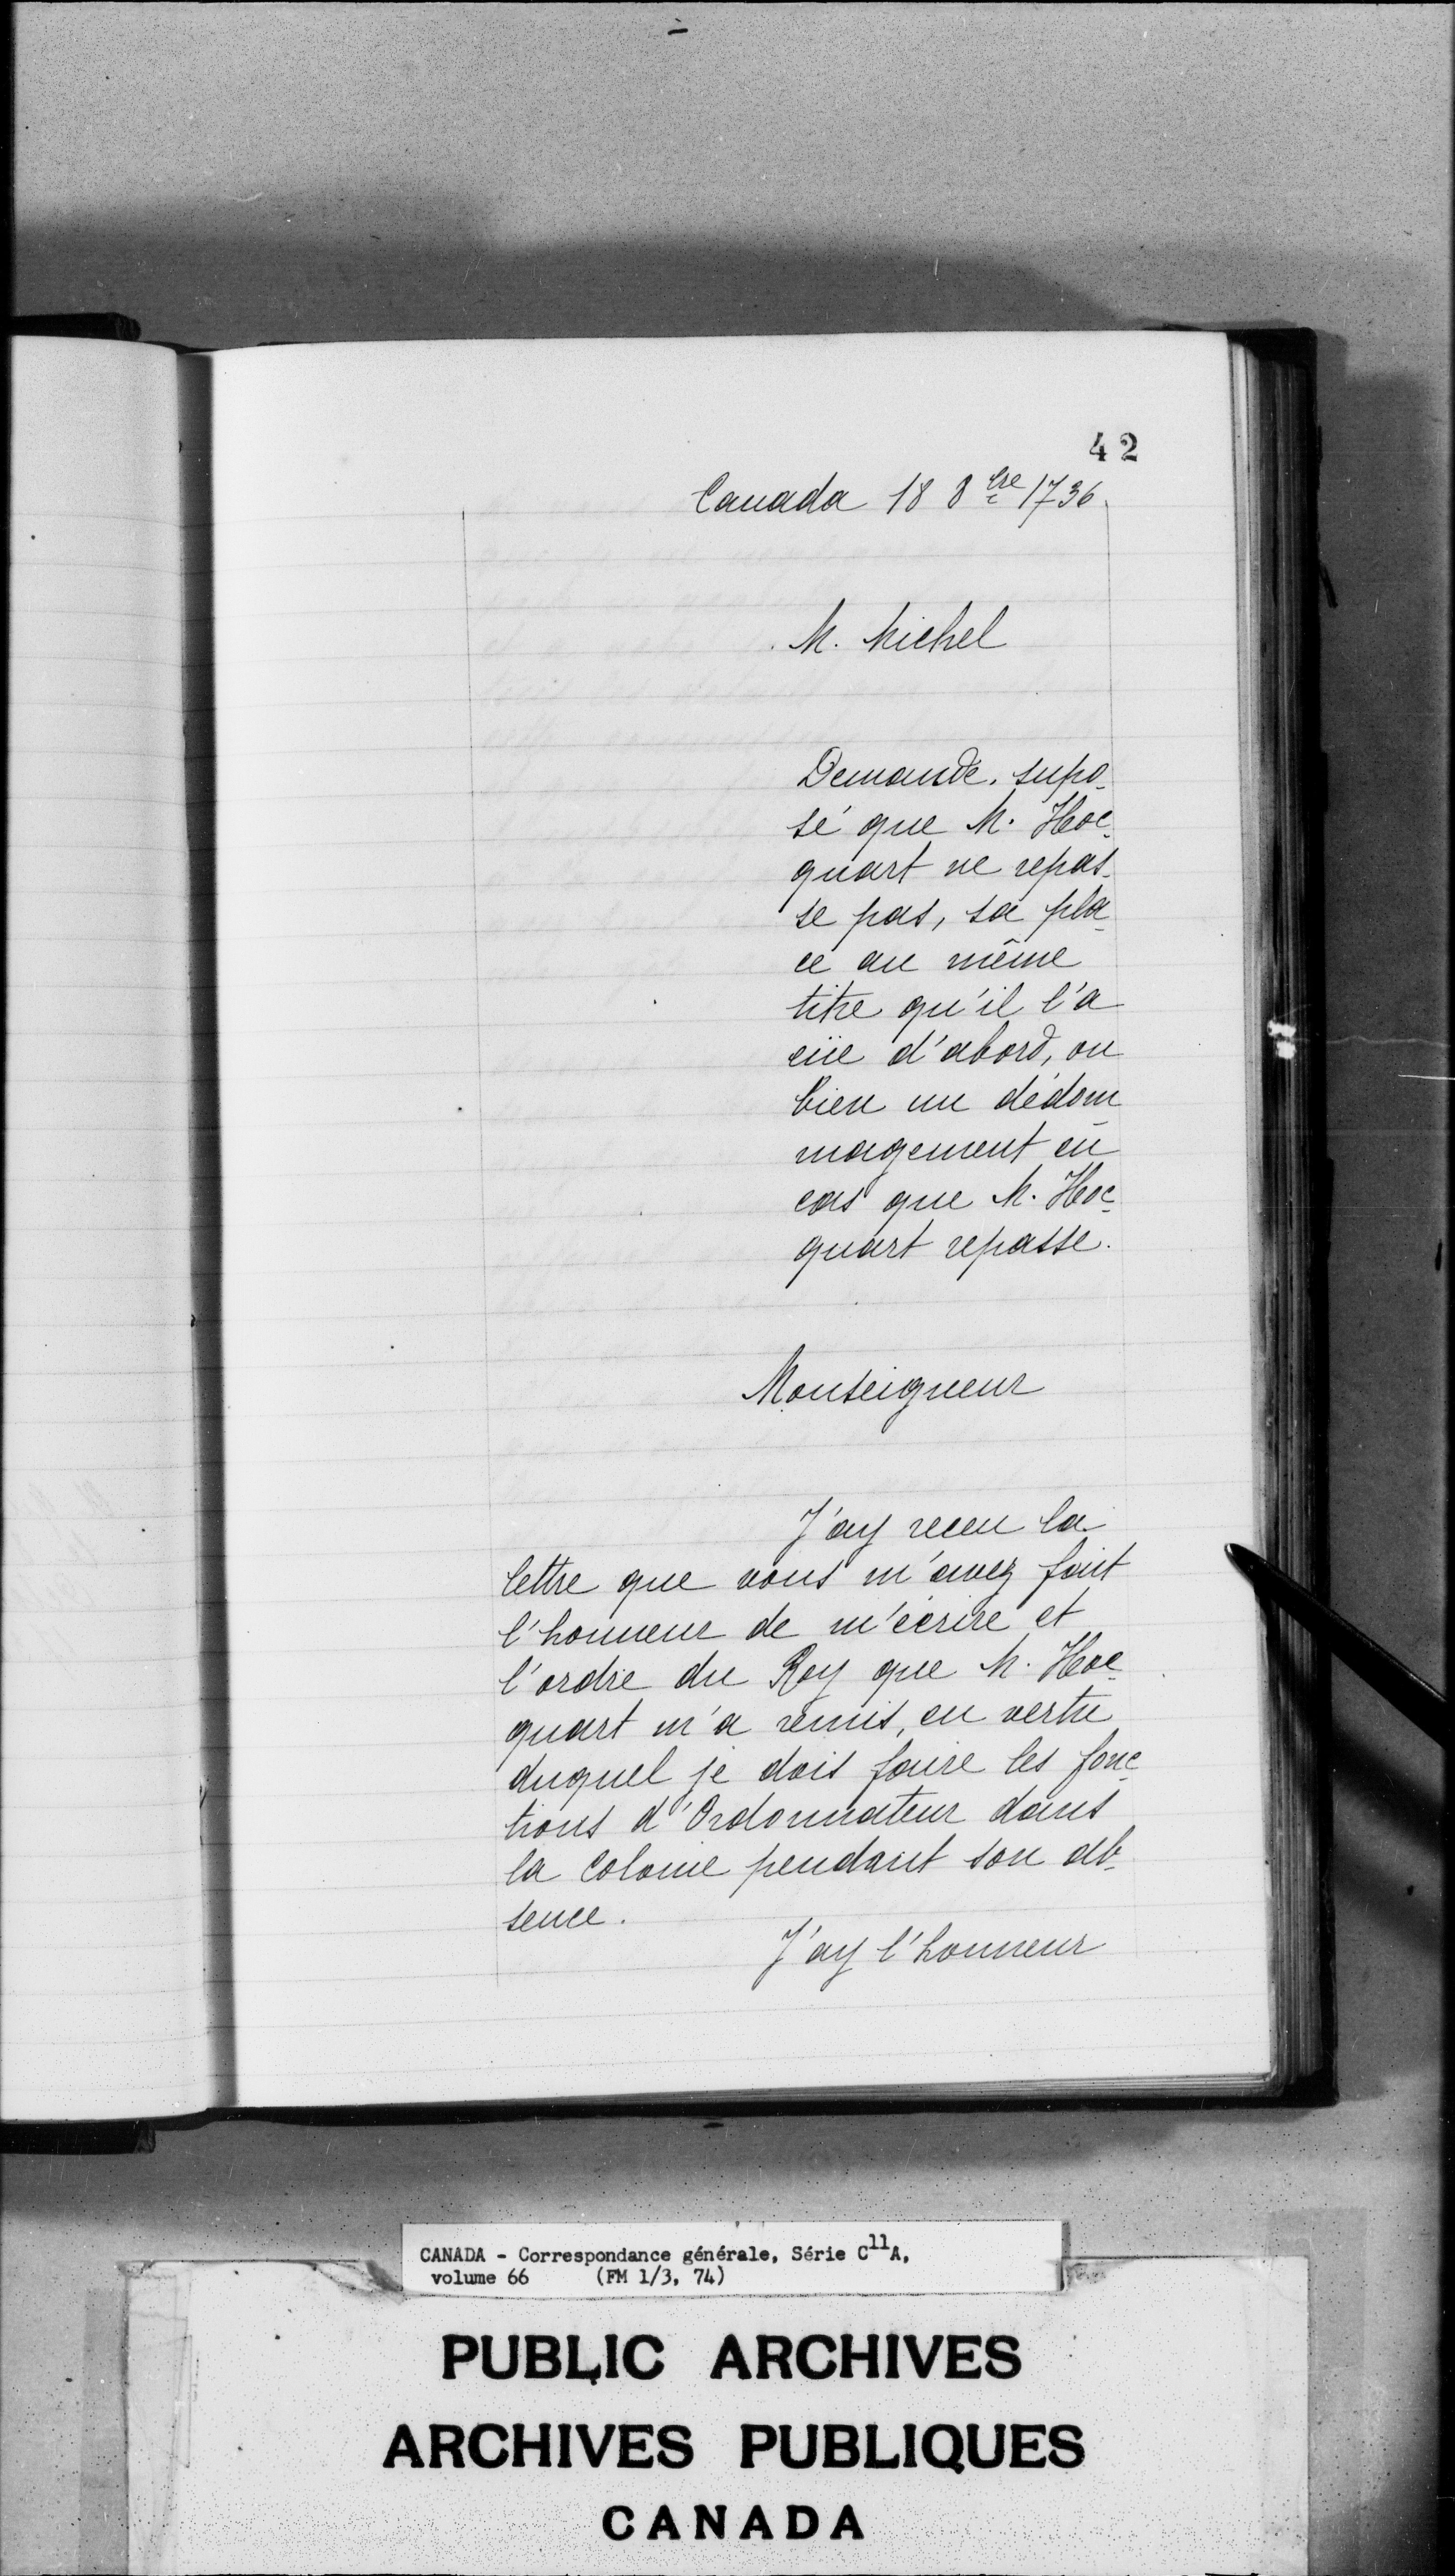 42
Canada 18 8bre 1736.
M. Michel
Demande, supo-
sé que M. Hoc-
quart ne repas-
se pas, sa pla-
ce au même
titre qu'il l'a
eüe d'abord, ou
bien un dédom
magement en
cas que M. Hoc-
quart repasse.
Monseigneur
J'ay receu la
lettre que vous m'avez fait
l'honneur de m'écrire et
l'ordre du Roy que M. Hoc-
quart m'a remis, en vertu
duquel je dois faire les fonc-
tions d'Ordonnateur dans
la Colonie pendant son ab-
sence.
J'ay l'honneur
CANADA - Correspondance générale, Série C11A,
volume 66 (FM 1/3, 74)
PUBLIC ARCHIVES
ARCHIVES PUBLIQUES
CANADA